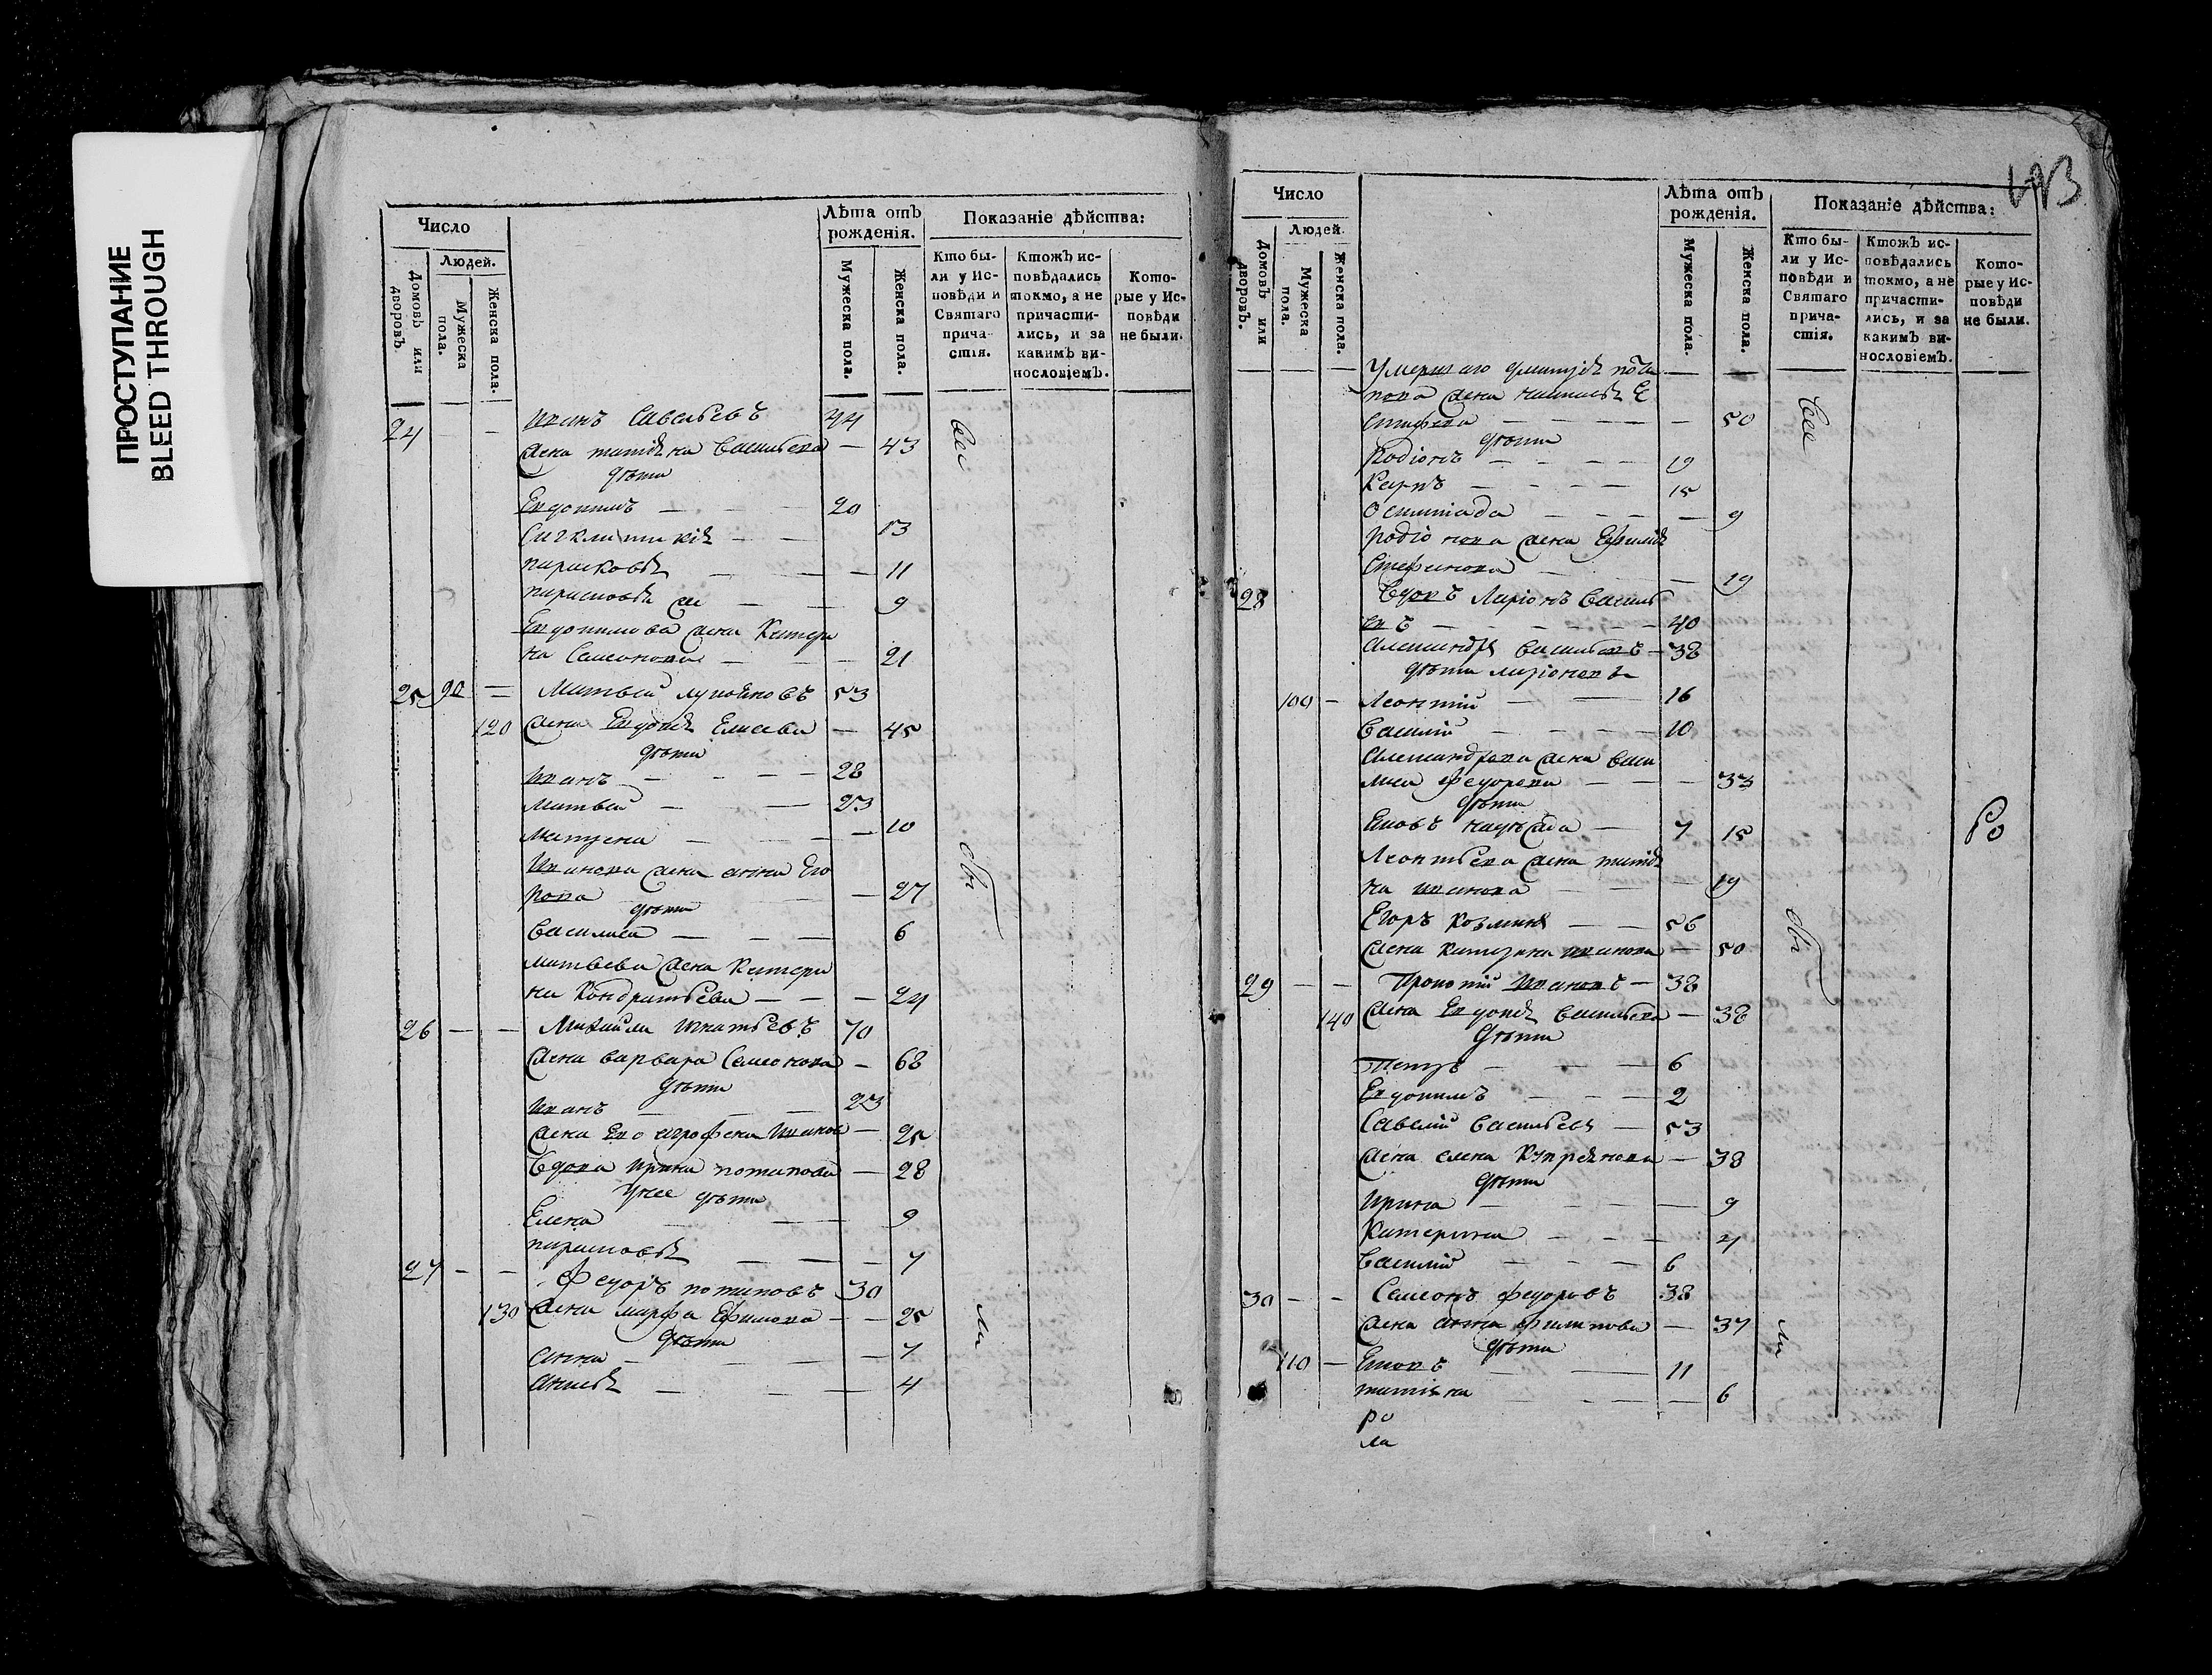 ПРОСТУПАНИЕ
BLEED THROUGH
Число
Людей.
Домовъ или дворовъ.
Мужеска пола.
Женска пола.
Лѣта отъ рожденія.
Мужеска пола.
Женска пола.
Показаніе дѣйства:
Кто были у Исповѣди и Святаго причастія.
Ктожъ исповѣдались токмо, а не причастились, и за какимъ винословіемъ.
Которые у Исповѣди не были.
24 — — Иванъ Савельевъ 44
жена татіяна Васильева — 43
дѣти
Евдокимъ — 20
Сигклитикія — — 13
парасковѣя — — 11
парасковѣя ж — — 9
Евдокимова жена Катери
на Семенова — — 21
25 90 — Матвей 53
120 жена Евдокѣя Елисева — 45
дѣти
Иванъ — — 28
Матвей — — 23
Матрена — — 10
Иванова жена анна Его
рова — 27
дѣти
Василиса — — 6
Матвева жена Катери
на Кондратьева — — 24
26 — — Михайла Игнатьевъ 70
жена варвара Семенова — 68
дѣти
Иванъ — — 23
жена Ево агрофена Иванов — 25
Вдова Ирина потапова — 28
унее дѣти
Елена — — 9
парасковѣя — — 7
27 — — Федоръ потаповъ 30
130 жена марфа Ефимова — — 25
дѣти
анна — — 7
анисья — — 4
193
Число
Людей.
Домовъ или дворовъ.
Мужеска пола.
Женска пола.
Лѣта отъ рожденія.
Мужеска пола.
Женска пола.
Показаніе дѣйства:
Кто были у Исповѣди и Святаго причастія.
Ктожъ исповѣдались токмо, а не причастились, и за какимъ винословіемъ.
Которые у Исповѣди не были.
Умершаго
пова жена
— — 50
дѣти
Родіонъ — — 19
Карпъ — — 15
— — 9
Родіонова жена Ефимія
Стефанова — — 19
28 Вдовъ Ларіонъ Василь
евъ — — 40
Александра Васильевъ — 38
дѣти Ларіоновы
100 — Леонтій — — 16
Василій — — 10
Александрова жена Васи
лиса Федорова — — 33
дѣти
Яковъ — 7 15
Леонтьева жена татія
на Иванова — — 19
Егоръ Козминъ — — 56
жена Катерина Иванова — 50
29 — — Прокопій Ивановъ — 38
140 жена Евдокѣя Васильева — 38
Дѣти
Петръ — — 6
Евдокимъ — — 2
Савелій Васильевъ — 53
жена елена Купреянова — 38
дѣти
Ирина — — 9
Катерина — — 4
Василій — — 6
30 — — Семенъ Федоровъ 38
жена анна Филипова — 37
дѣти
110 — Яковъ — — 11
татіяна — — 6
ро
ла
Все